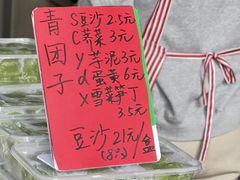 青团子
S豆沙2.5元
C荠菜3元
y芋泥3元
d蛋黄6元
x雪菜笋丁
3.5元
豆沙21元/盒
(8个)